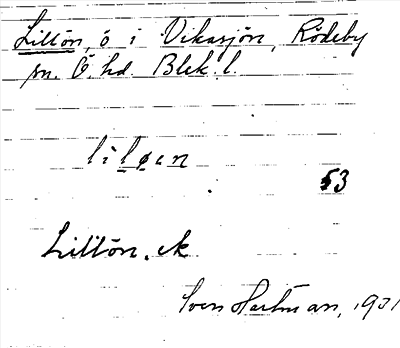 Lillön, ö i Vikasjön, Rödeby
sn. Ö. hd. Blek. l.
lìløen
53
Lillön, ek
Sven Hartman, 1931